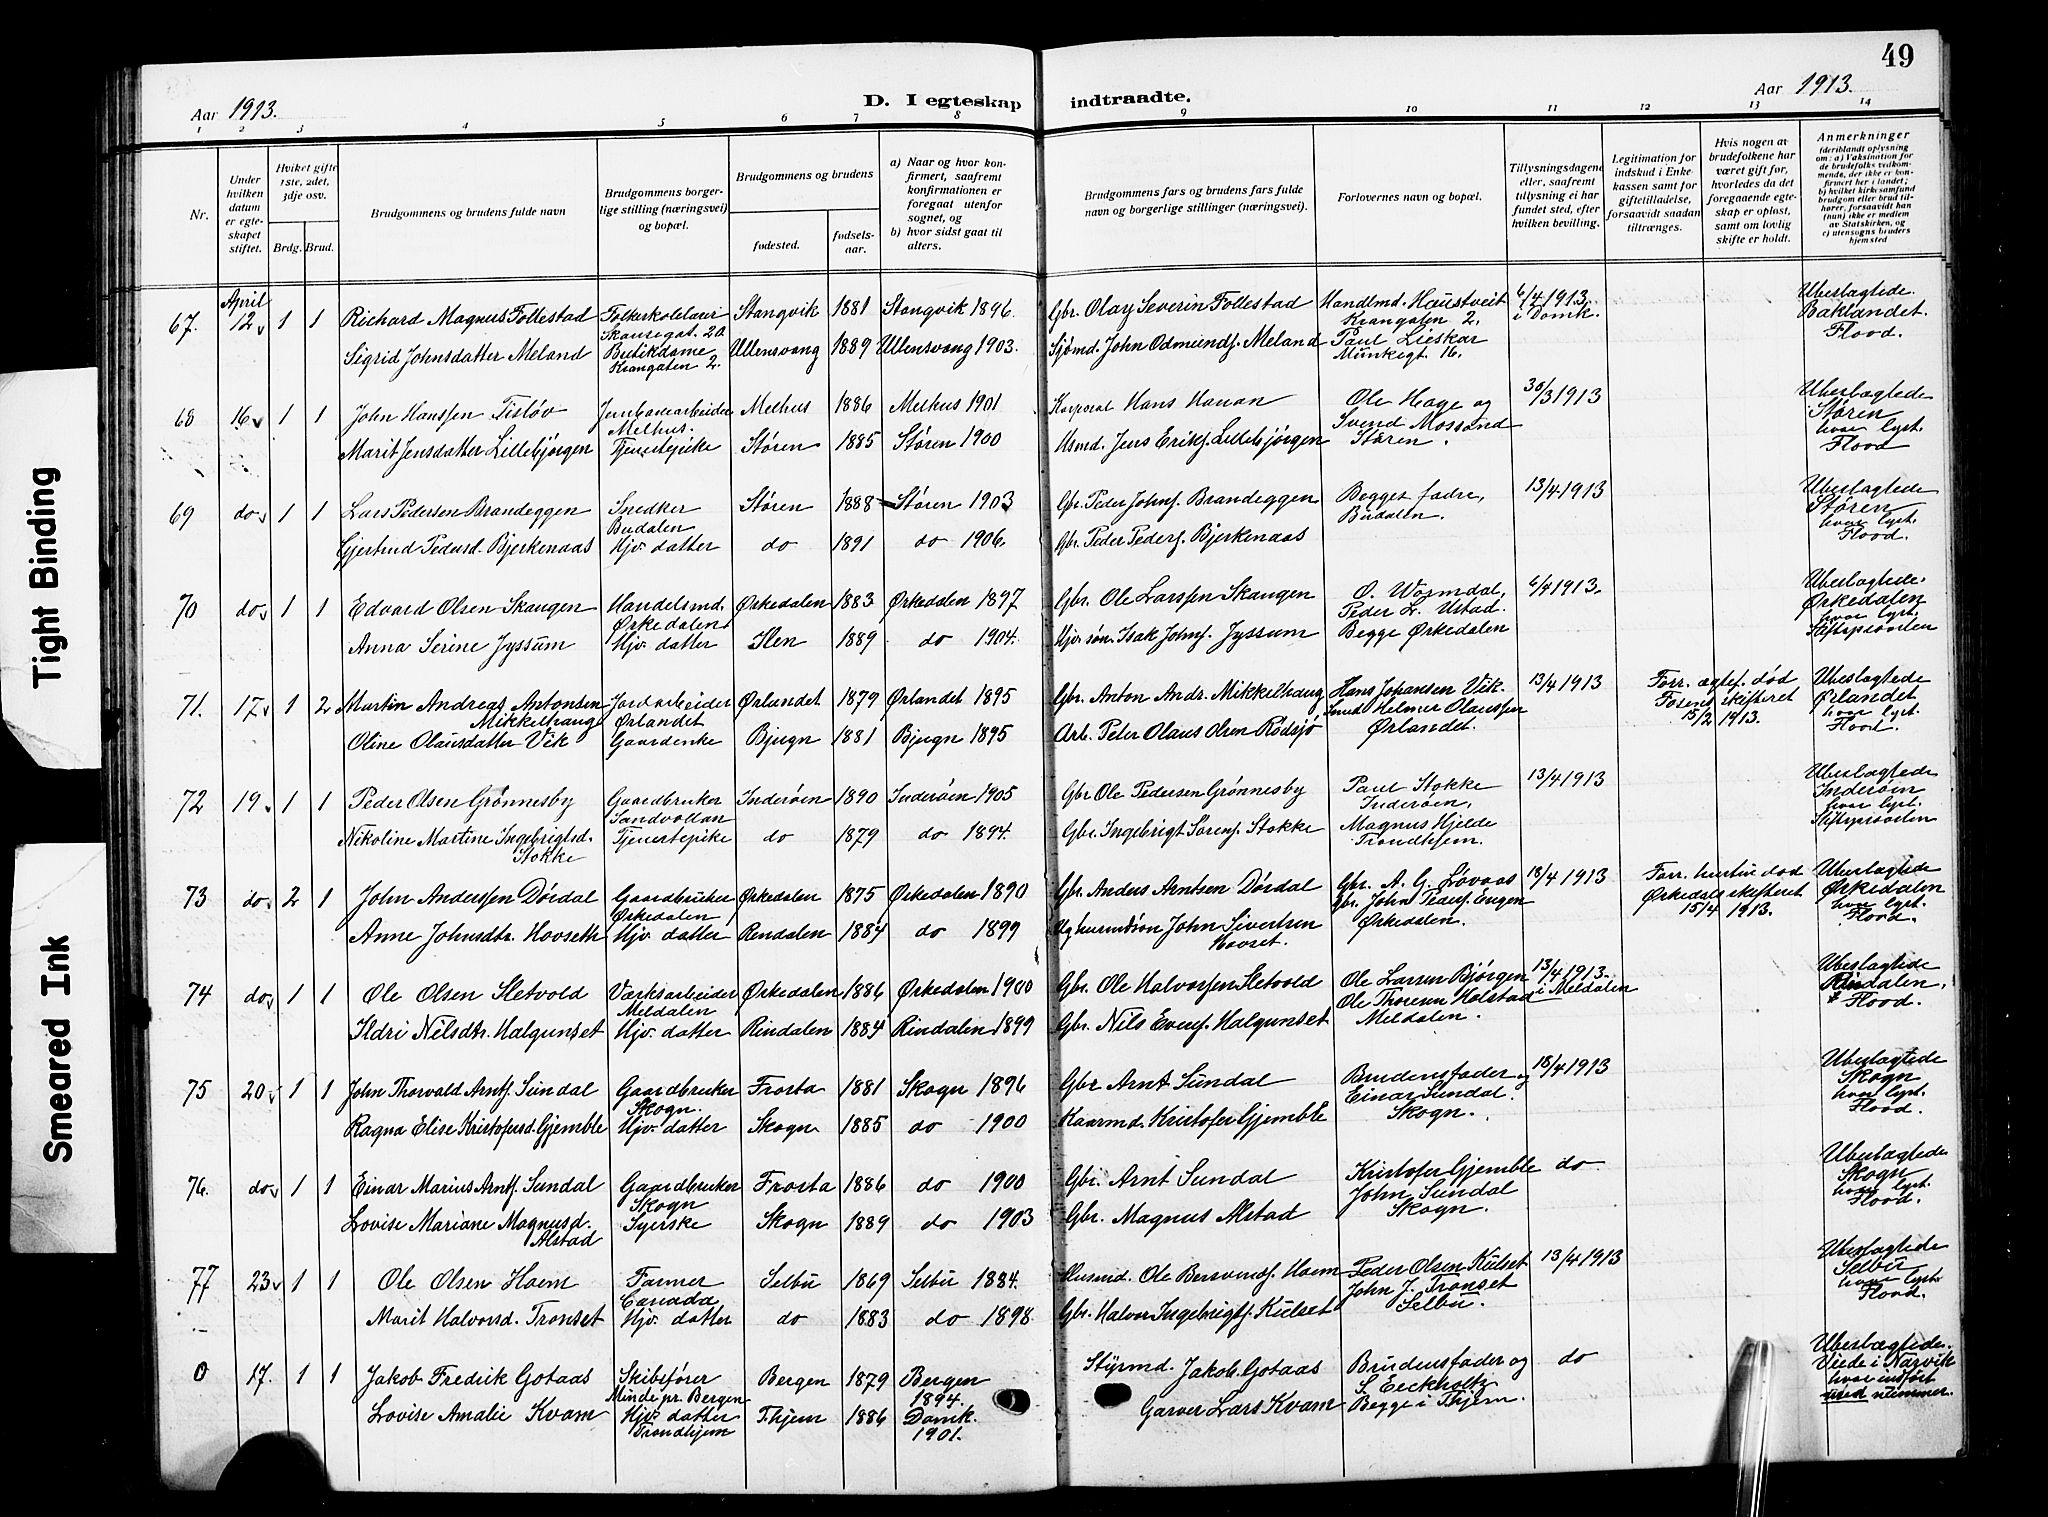 Tight Binding
Smeared Ink
Aar 1913.
D. I egteskap
indtraadte.
Aar 1913.
49
1 2 3 4 5 6 7 8 9 10 11 12 13 14
Nr.
Under hvilken datum er egteskapet stiftet.
Hvilket gifte 1ste, 2det, 3dje osv.
Brdg. Brud.
Brudgommens og brudens fulde navn
Brudgommens borgerlige stilling (næringsvei) og bopæl.
Brudgommens og brudens
fødested.
fødselsaar.
a) Naar og hvor konfirmert, saafremt konfirmationen er foregaat utenfor sognet, og
b) hvor sidst gaat til alters.
Brudgommens fars og brudens fars fulde navn og borgerlige stillinger (næringsvei).
Forlovernes navn og bopæl.
Tillysningsdagene eller, saafremt tillysning ei har fundet sted, efter hvilken bevilling.
Legitimation for indskud i Enkekassen samt for giftetilladelse, forsaavidt saadan tiltrænges.
Hvis nogen av brudefolkene har været gift før, hvorledes da det foregaaende egteskap er opløst, samt om lovlig skifte er holdt.
Anmerkninger (deriblandt oplysning om: a) Vaksination for de brudefolks vedkommende, der ikke er konfirmert her i landet; b) hvilket kirkesamfund brudgom eller brud tilhører, forsaavidt han (hun) ikke er medlem av Statskirken, og c) utensogns bruders hjemsted
67. April 12 1 1 Richard Magnus Follestad Folkeskolelærer Stangvik 1881 Stangvik 1896. Gbr. Olay Severin Follestad Handlmd. Haustveit 6/4 1913. Ubeslægtede.
Skansegat. 20 Krangaten 2. i Domk. Baklandet.
Sigrid Johnsdatter Meland Butikdame Ullensvang 1889 Ullensvang 1903. Sjømd. John Odmundsf. Meland Paul Lieskar Flood.
Krangaten 2. Munkegt. 16.
68 16 1 1 John Hanssen Tisløv Jernbanearbeider Melhus 1886 Melhus 1901 Korporal Hans Hanan Ole Hage og 30/3 1913 Ubeslægtede
Melhus. Svend Mossand Støren
Marit Jensdatter Lillebjørgen Tjenestepike Støren 1885 Støren 1900 Husmd. Jens Eriksf. Lillebjørgen Støren. hvor lyst.
Flood
69 do 1 1 Lars Pedersen Brandeggen Snedker Støren 1888 Støren 1903 Gbr. Peder Johnsf. Brandeggen Begges fædre, 13/4 1913 Ubeslægtede
Budalen Budalen. Støren
Gjertrud Pedersd. Bjerkenaas Hjv. datter do 1891 do 1906. Gbr. Peder Pedersf. Bjerkenaas hvor lyst.
Flood.
70 do 1 1 Edvard Olsen Skaugen Handelsmd. Ørkedalen 1883 Ørkedalen 1897 Gbr. Ole Larssen Skaugen O. Wormdal, 6/4 1913. Ubeslægtede.
Ørkedalen Peder L. Ustad. Ørkedalen
Anna Serine Jyssum Hjv. datter Ilen 1889 do 1904. Isak Johnsf. Jyssum Begge Ørkedalen hvor lyst.
Stiftsprovsten
71. 17 1 2 Martin Andreas Antonsen Jordarbeider Ørlandet 1879 Ørlandet 1895 Gbr. Anton Andr. Mikkelhaug Hans Johansen Vik. 13/4 1913 Forr. ægtef. død Ubeslægtede
Mikkelhaug Ørlandet Helmer Olaussen skifteret Ørlandet
Oline Olausdatter Vik Gaardenke Bjugn 1881 Bjugn 1895 Arb. Peter Olaus Olsen Rødsjø Ørlandet. 15/2 1913. hvor lyst.
Flood.
72 19 1 1 Peder Olsen Grønnesby Gaardbruker Inderøen 1890 Inderøen 1905 Gbr Ole Pedersen Grønnesby Paul Stokke 13/4 1913 Ubeslægtede
Sandvollan Inderøen. Inderøen
Nikoline Martine Ingebrigtsd. Tjenestepike do 1879 do 1894. Gbr. Ingebrigt Sørensf. Stokke Magnus Hjelde hvor lyst.
Stokke Trondhjem. Stiftsprovsten
73 do 2 1 John Anderssen Dørdal Gaardbruker Ørkedalen 1875 Ørkedalen 1890 Gbr. Anders Arntsen Dørdal Gbr. A. G. Løvaas 18/4 1913 Forr. hustru død Ubeslægtede
Ørkedalen Gbr. John Pedersf. Engen Ørkedals skifteret Ørkedalen
Anne Johnsdtr. Hovseth Hjv. datter Rendalen 1884 do 1899 John Sivertsen Ørkedalen. 15/4 1913. hvor lyst.
Hovset. Flood.
74 do 1 1 Ole Olsen Sletvold Værksarbeider Ørkedalen 1886 Ørkedalen 1900 Gbr. Ole Halvorssen Sletvold Ole Larsen Bjørgen 13/4 1913. Ubeslægtede
Meldalen Ole Thoresen Holstad i Meldalen Rindalen,
Ildri Nilsdtr. Halgunset Hjv. datter Rindalen 1884 Rindalen 1899 Gbr. Nils Evensf. Halgunset Meldalen. Flood.
75 20 1 1 John Thorvald Arntsf. Sundal Gaardbruker Frosta 1881 Skogn 1896 Gbr Arnt Sundal Brudensfader og 18/4 1913 Ubeslægtede
Skogn. Einar Sundal. Skogn
Ragna Elise Kristofersd. Gjemble Hjv. datter Skogn 1885 do 1900 Kaarmd. Kristofer Gjemble Skogn. hvor lyst.
Flood.
76. do 1 1 Einar Marius Arntsf. Sundal Gaardbruker Frosta 1886 do 1900 Gbr. Arnt Sundal Kristofer Gjemble do Ubeslægtede
Skogn John Sundal Skogn
Lovise Mariane Magnusd. Syerske Skogn 1889 do 1903 Gbr. Magnus Alstad Skogn. hvor lyst.
Alstad Flood.
77 23 1 1 Ole Olsen Hoem Farmer Selbu 1869 Selbu 1884. Husmd. Ole Bersvendsf. Hoem Peder Olsen Kulset 13/4 1913 Ubeslægtede
Canada John J. Tronset Selbu
Marit Halvorsd. Tronset Hjv. datter do 1883 do 1898 Gbr. Halvor Ingebrigtsf. Kulset Selbu. hvor lyst.
Flood.
0 17. 1 1 Jakob Fredrik Gotaas Skibsfører Bergen 1879 Bergen Styrmd. Jakob Gotaas Brudensfader og do Ubeslægtede.
Minde pr. Bergen 1894. S. Eeckholtz Viede i Narvik
Lovise Amalie Kvam Hjv. datter T.hjem 1886 Domk. Garver Lars Kvam Begge i T.hjem. hvor indført
Trondhjem 1901. med nummer.